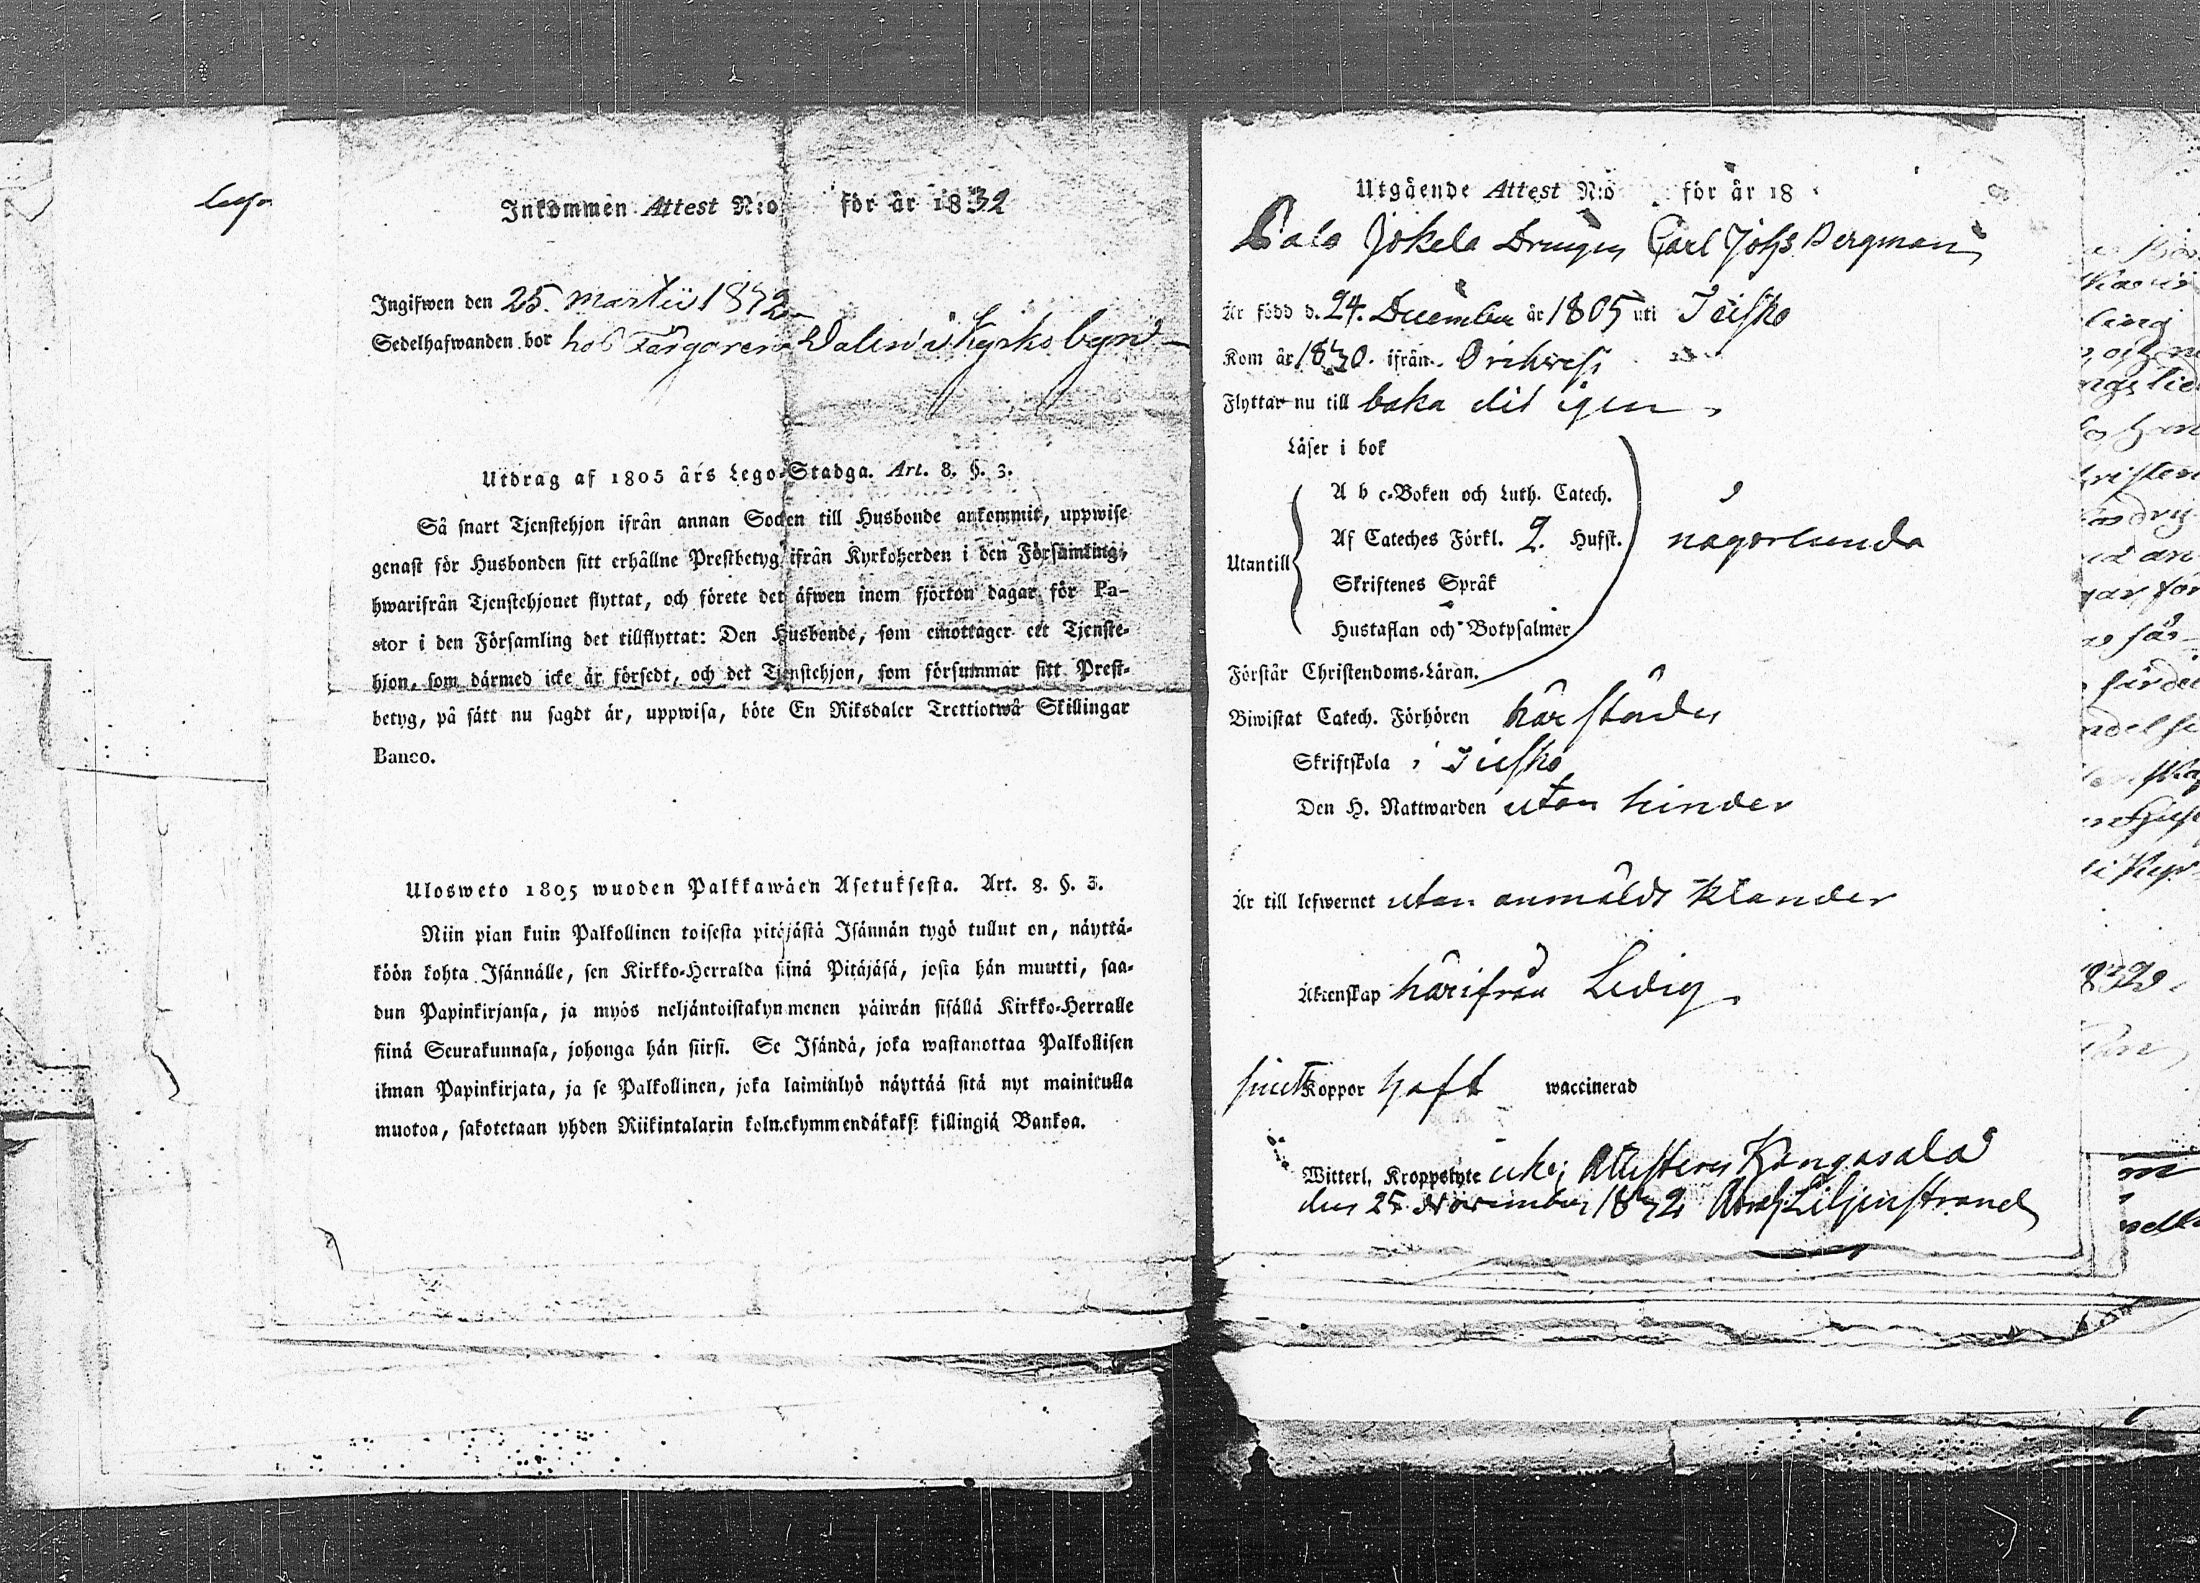 Inkommen Attest N:o för år 1832
Ingifwen den 25. Martii 1832
Sedelhafwanden bor hos Färgaren Dalen i Kyrkobyn
Utdrag af 1805 års Lego-Stadga. Art. 8. §. 3.
Så snart Tjenstehjon ifrån annan Socken till Husbonde ankommit, uppwise
genast för Husbonden sitt erhållne Prestbetyg ifrån Kyrkoherden i den Församling,
hwarifrån Tjenstehjonet flyttat, och förete det äfwen inom fjorton dagar för Pa-
stor i den Församling det tillflyttat: Den Husbonde, som emottager ett Tjenste-
hjon, som därmed icke är försedt, och det Tjenstehjon, som försummar sitt Prest-
betyg, på sätt nu sagdt är, uppwisa, böte En Riksdaler Trettiotwå Skillingar
Banco.
Ulosweto 1805 wuoden Palkkawäen Asetuksesta. Art. 8. §. 3.
Niin pian kuin Palkollinen toisesta pitäjästä Isännän tygö tullut on, näyttä-
köön kohta Isännälle, sen Kirkko-Herralda siinä Pitäjäsä, josta hän muutti, saa-
dun Papinkirjansa, ja myös neljäntoistakymmenen päiwän sisällä Kirkko-Herralle
siinä Seurakunnasa, johonga hän siirsi. Se Isändä, joka wastanottaa Palkollisen
ilman Papinkirjata, ja se Palkollinen, joka laiminlyö näyttää sitä nyt mainitulla
muotoa, sakotetaan yhden Riikintalarin kolmekymmendäkaksi killingiä Bankoa.
Utgående Attest N:o för år 18
Jokela Drengen Carl Johs Bergman
Är född d. 24. December år 1805 uti Teisko
Kom år 1830. ifrån Orihwesi
Flyttar nu till baka dit igen
Läser i bok
A b c-Boken och Luth. Catech.
Af Cateches Förkl. 2. Hufst. någorlunda
Utantill
Skriftenes Språk
Hustaflan och Botpsalmer
Förstår Christendoms-Läran.
Biwistat Catech. Förhören härstädes
Skriftskola i Teisko
Den H. Nattwarden utan hinder
Är till lefwernet utan anmäldt klander
Äktenskap härifrån Ledig
Koppor haft waccinerad
Witterl. Kroppslyte icke; Attesteras Kangasala
den 25 November 1832 Abrah Liljenstrand